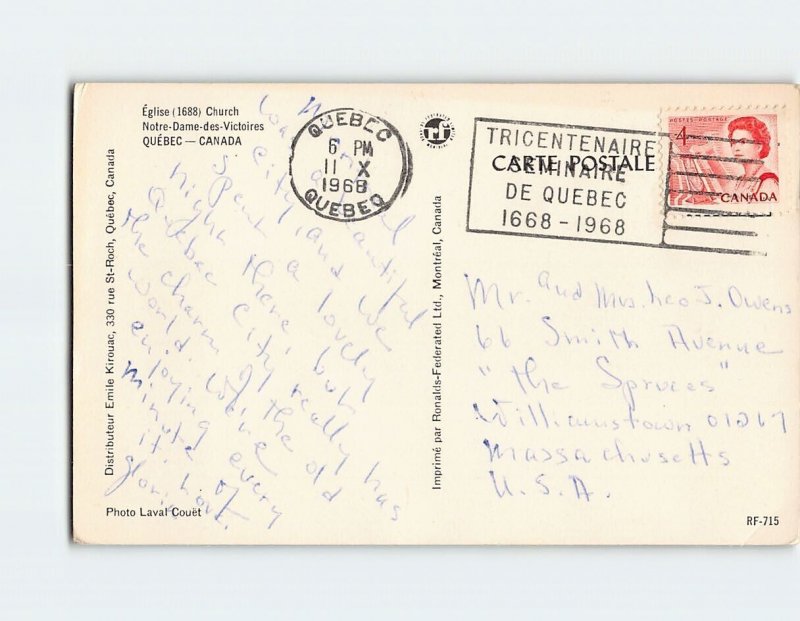 Église (1688) Church
Notre-Dame-des-Victoires
QUÉBEC — CANADA
QUEBEC
6 PM
11 X
1968
QUEBEC
TRICENTENAIRE
SEMINAIRE
DE QUEBEC
1668 - 1968
CARTE POSTALE
POSTES-POSTAGE
4
CANADA
rf
Distributeur Emile Kirouac, 330 rue St-Roch, Québec, Canada
Montreal
is a beautiful
city and we
spent a lovely
night there, but
Quebec City really has
the charm of the old
world. We're
enjoying every
minute of
it. Love,
Gloria
Imprimé par Ronalds-Federated Ltd., Montréal, Canada
Mr. and Mrs. Leo J. Owens
66 Smith Avenue
"The Spruces"
Williamstown 01267
Massachusetts
U.S.A.
Photo Laval Couët
RF-715